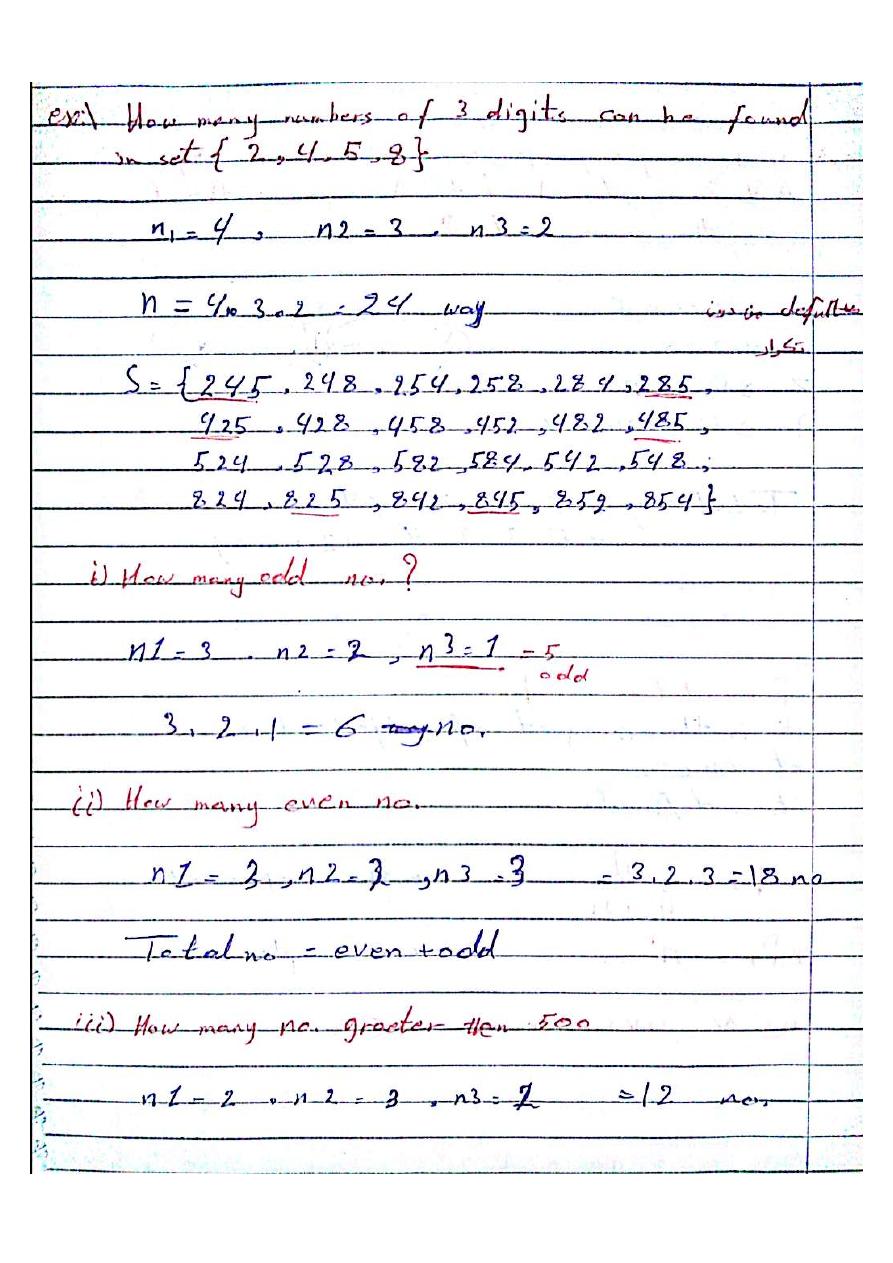 ex:\ How many numbers of 3 digits can be found
in set { 2, 4, 5, 8}
n1 = 4 , n2 = 3 , n3 = 2
n = 4.3.2 = 24 way
defult
تكرار
S = { 245 , 248 , 254 , 258 , 284 , 285 ,
425 , 428 , 458 , 452 , 482 , 485 ,
524 , 528 , 582 , 584 , 542 , 548 ,
824 , 825 , 842 , 845 , 852 , 854 }
i) How many odd no. ?
n1 = 3 . n2 = 2 , n3 = 1 - 5
odd
3 . 2 . 1 = 6 no.
ii) How many even no.
n1 = 3 , n2 = 2 , n3 = 3 = 3.2.3 = 18 no
Total no = even + odd
iii) How many no. greater then 500
n1 = 2 , n2 = 3 , n3 = 2 = 12 no.